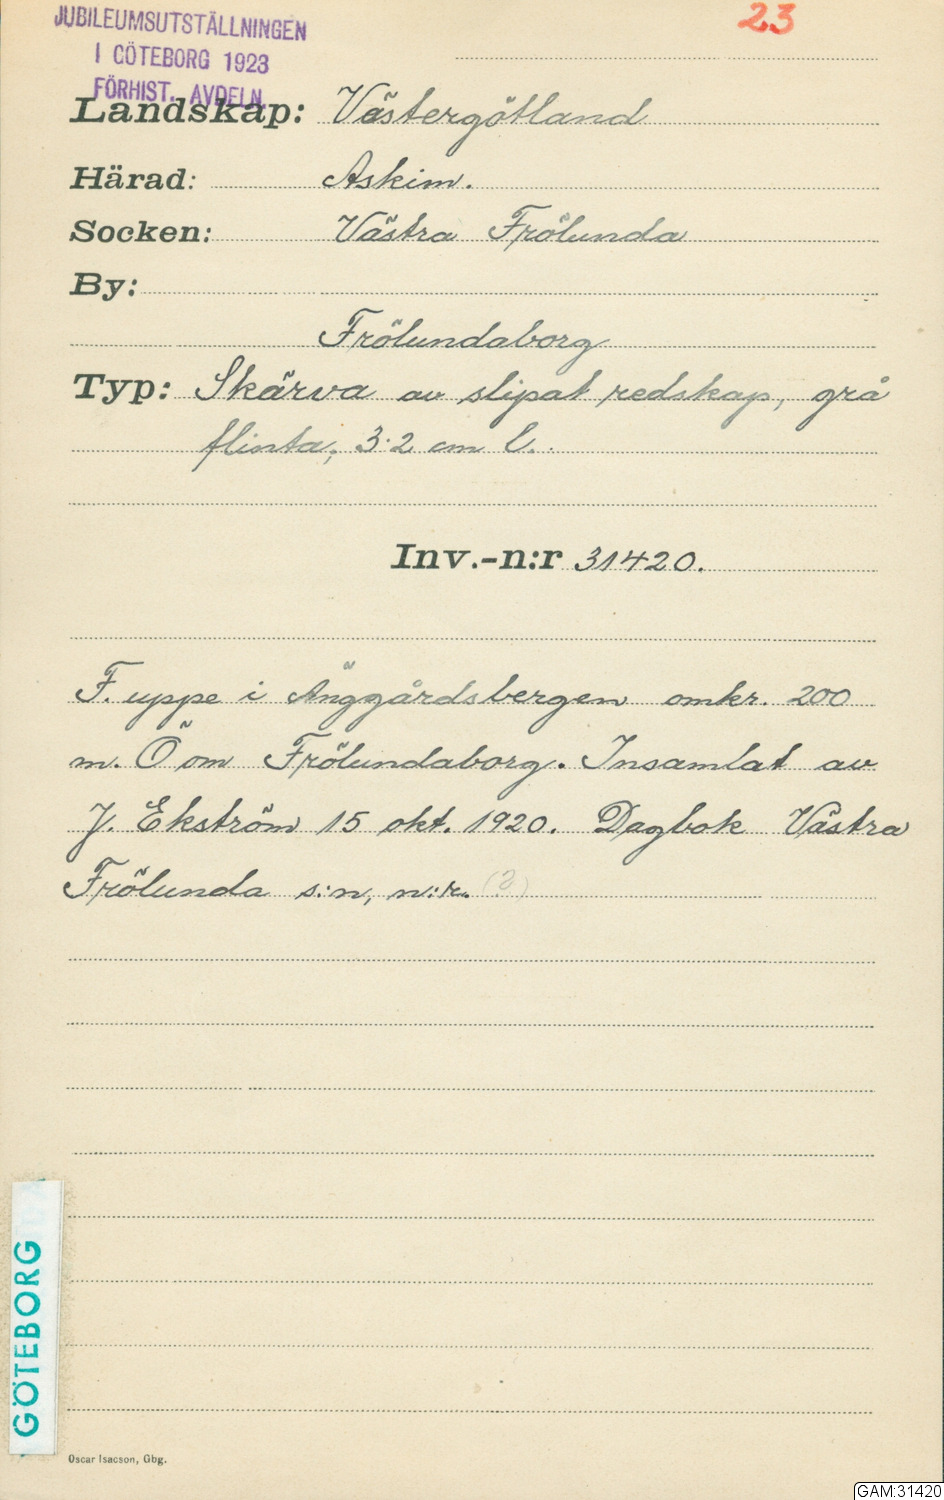 JUBILEUMSUTSTÄLLNINGEN
I GÖTEBORG 1923
FÖRHIST. AVDELN.
23
Landskap: Västergötland
Härad: Askim.
Socken: Västra Frölunda
By:
Frölundaborg
Typ: Skärva av slipat redskap, grå
flinta; 3.2 cm l.
Inv.-n:r 31420.
F. uppe i Änggårdsbergen omkr. 200
m. Ö om Frölundaborg. Insamlat av
J. Ekström 15 okt. 1920. Dagbok Västra
Frölunda s:n, n:r. (?)
GÖTEBORG
Oscar Isacson, Gbg.
GAM:31420